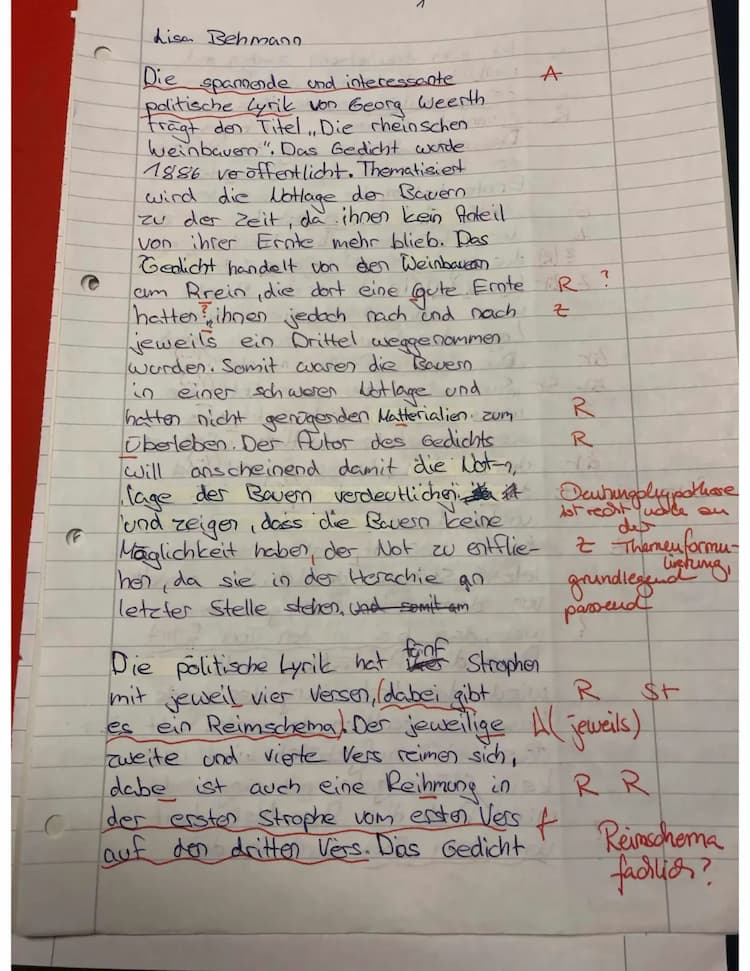 1
Lisa Behmann
Die spannende und interessante A
politische Lyrik von Georg Weerth
trägt den Titel „Die rheinschen
Weinbauern". Das Gedicht wurde
1886 veröffentlicht. Thematisiert
wird die Notlage der Bauern
zu der Zeit, da ihnen kein Anteil
von ihrer Ernte mehr blieb. Das
Gedicht handelt von den Weinbauern
am Rrein, die dort eine gute Ernte R ?
hatten, ihnen jedoch nach und nach Z
jeweils ein Drittel weggenommen
wurden. Somit waren die Bauern
in einer schweren Notlage und
hatten nicht genügenden Matterialien zum R
Überleben. Der Autor des Gedichts R
will anscheinend damit die Not-
lage der Bauern verdeutlichen Deutungshypothese
und zeigen, dass die Bauern keine ist recht nahe an
der
Möglichkeit haben, der Not zu entflie- Z Themenformu-
lierung,
hen, da sie in der Herachie an grundlegend
letzter Stelle stehen. und somit am passend
fünf
Die politische Lyrik hat Strophen
mit jeweil vier Versen, (dabei gibt R St
es ein Reimschema). Der jeweilige A (jeweils)
zweite und vierte Vers reimen sich,
dabe ist auch eine Reihmung in R R
der ersten Strophe vom ersten Vers f
auf den dritten Vers. Das Gedicht Reimschema
fachlich?